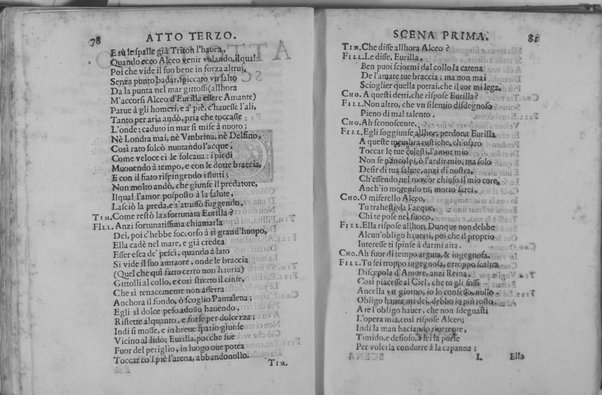 78 ATTO TERZO.
E sù le spalle già Triton l'hauea,
Quando ecco Alceo venir volando, ilqual
Poi che vide il suo bene in forza altrui,
Senza punto badar, spiccato vn salto
Da la punta nel mar gittossi (allhora
M'accorsi Alceo d'Eurilla essere Amante)
Parue à gli homeri, e à piè, c'hauesse l'ali,
Tanto per aria andò, pria che toccasse
L'onde: caduto in mar si mise à nuoto:
Nè Lontra mai, nè Vmbrina, nè Delfino,
Così ratto solcò nuotando l'acque,
Come veloce ei le solcaua: i piedi
Muouendo à tempo, e con le dotte braccia,
E con il fiato rispingendo i flutti;
Non molto andò, che giunse il predatore,
Ilqual l'amor posposto à la salute,
Lasciò la preda, e s'attuffò fuggendo.
TIM. Come restò la sfortunata Eurilla?
FILL. Anzi fortunatissima chiamarla
Dei, poi c'hebbe soccorso à sì grand'huopo,
Ella cadè nel mare, e già credea
Esser esca de' pesci, quando à lato
Si vide il suo amatore, onde le braccia
(Quel che già fatto certo non hauria)
Gittolli al collo, e così stretto il cinse,
Che sì tenacemente non afferra
Anchora il fondo, ò scoglio Pantalena;
Egli al dolce peso adosso hauendo,
Ristette alquanto, e forse per dolcezza;
Indi si mosse, e in breue spatio giunse
Vicino al lido: Eurilla, poi che fue
Fuor del periglio, in luogo oue potea
Toccar co'l piè l'arena, abbandonollo.
TIM.
SCENA PRIMA. 81
TIM. Che disse allhora Alceo?
FILL. Le disse, Eurilla,
Ben puoi sciormi dal collo la catena
De l'amate tue braccia; ma non mai
Scioglier quella potrai, che il cor mi lega.
CHO. A questi detti, che rispose Eurilla?
FILL. Non altro, che vn silentio disdegnoso
Pieno di mal talento.
CHO. Ah sconoscente.
FILL. Egli soggiunse allhor, perdona Eurilla
A queste membra rustiche, ch'osaro
Toccar le tue celesti, l'amor mio
Non fe pàncolpi, ò l'ardir mio, ma solo
Desir di tua salute, anzi di nostra,
Ch'essendo nel tuo cor chiuso il mio core,
Anch'io morendo tu, morto sarei.
CHO. O miserello Alceo,
Tu trahesti da l'acque
Chi te pose nel fuoco.
FILL. Ella rispose allhor; Dunque non debbo
Alcun'obligo hauerti, poi che il proprio
Interesse ti spinse à darmi aita.
CHO. Ah fuor di tempo arguta, & ingegnosa.
FILL. Tu sei troppo ingegnosa, e troppo scaltra
Discepola d'Amore, anzi Reina.
Così piacesse al Ciel, che tu gli fossi
Ancella vn giorno, io lo confesso, nollo
Obligo hauer mi dei, debb'io più tosto
A te l'obligo hauer, che non sdegnasti
L'opera mia, così rispose Alceo;
Indi la man baciando riuerente,
Timido, e desioso, à lei la porse
Per volerla condurre à la capanna;
L Ella